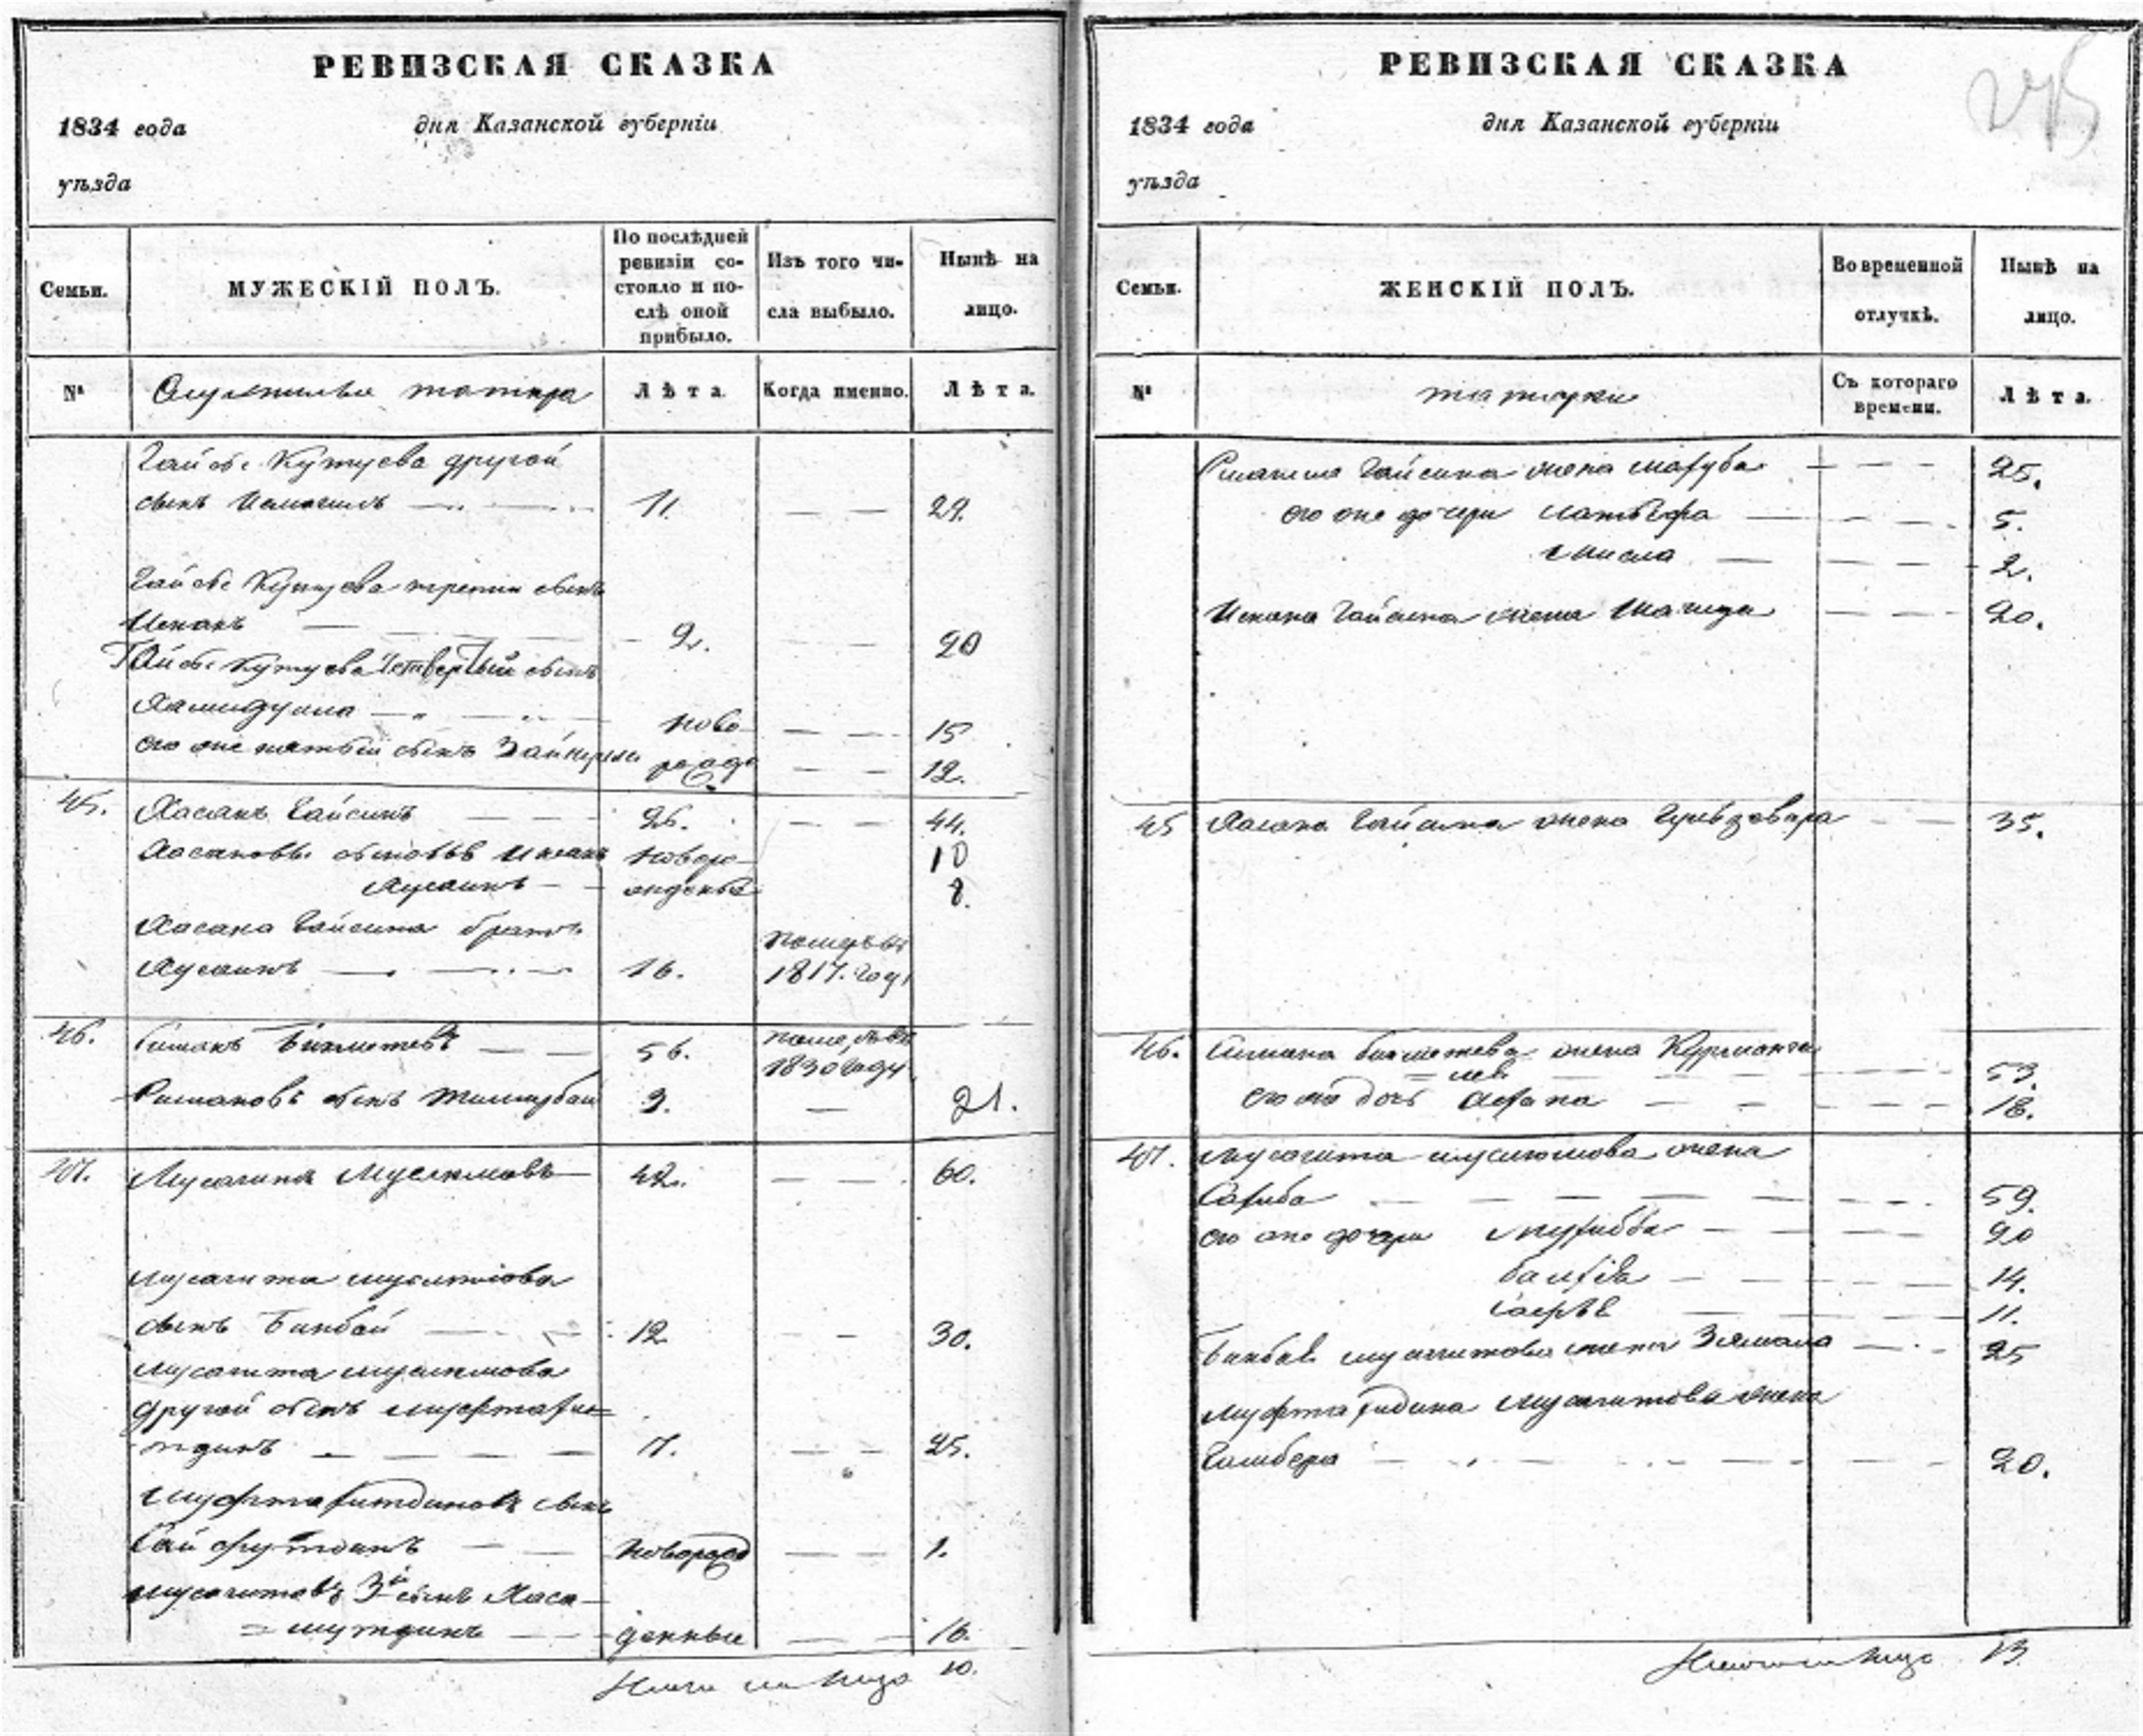 РЕВИЗСКАЯ СКАЗКА
1834 года дня Казанской губерніи
уѣзда
Семьи.
МУЖЕСКІЙ ПОЛЪ.
По послѣдней ревизіи состояло и послѣ оной прибыло.
Изъ того числа выбыло.
Нынѣ на лицо.
№
татара
Лѣта.
Когда именно.
Лѣта.
Гайсы Кутуева другой
сынъ Исмагилъ 11. 29.
Гайсы Кутуева третий сынъ
Исхакъ 2. 20
Гайсы Кутуева четвертый сынъ
Хамидулла ново 15
его же пятый сынъ рожд 12.
45. Хасанъ Гайсинъ 26. 44.
Хасановы сыновья Исхакъ новоро 10
Хусаинъ жденные 8.
Хасана Гайсина братъ
Хусаинъ 16. померъ въ 1817. году
46. Бикметевъ 56. померъ въ 1830 году
сынъ 3. 21.
47. Мусагитъ Муслюмовъ 42. 60.
Мусагита Муслюмова
сынъ Бикбай 12 30.
Мусагита Муслюмова
другой сынъ Мифтахи
тдинъ 7. 25.
Мифтахитдиновъ сынъ
Сайфутдинъ новорож 1.
Мусагитовъ 3й сынъ Хаса
мутдинъ денные 16.
Итого на лицо 10.
РЕВИЗСКАЯ СКАЗКА
1834 года дня Казанской губерніи
уѣзда
Семьи.
ЖЕНСКІЙ ПОЛЪ.
Во временной отлучкѣ.
Нынѣ на лицо.
№
татарки
Съ котораго времени.
Лѣта.
Гайсина жена Махуба 25.
его же дочери Латыфа 5.
2.
Исхака Гайсина жена Шагида 20.
45 Хасана Гайсина жена Гульзавара 35.
46. Бикметева жена 53.
его же дочь 18.
47. Мусагита Муслюмова жена
Сахиба 59.
его же дочери 20
14.
11.
Бикбая Мусагитова жена Зямала 25
Мифтахидина Мусагитова жена
Гамбера 20.
Итого на лицо 13.